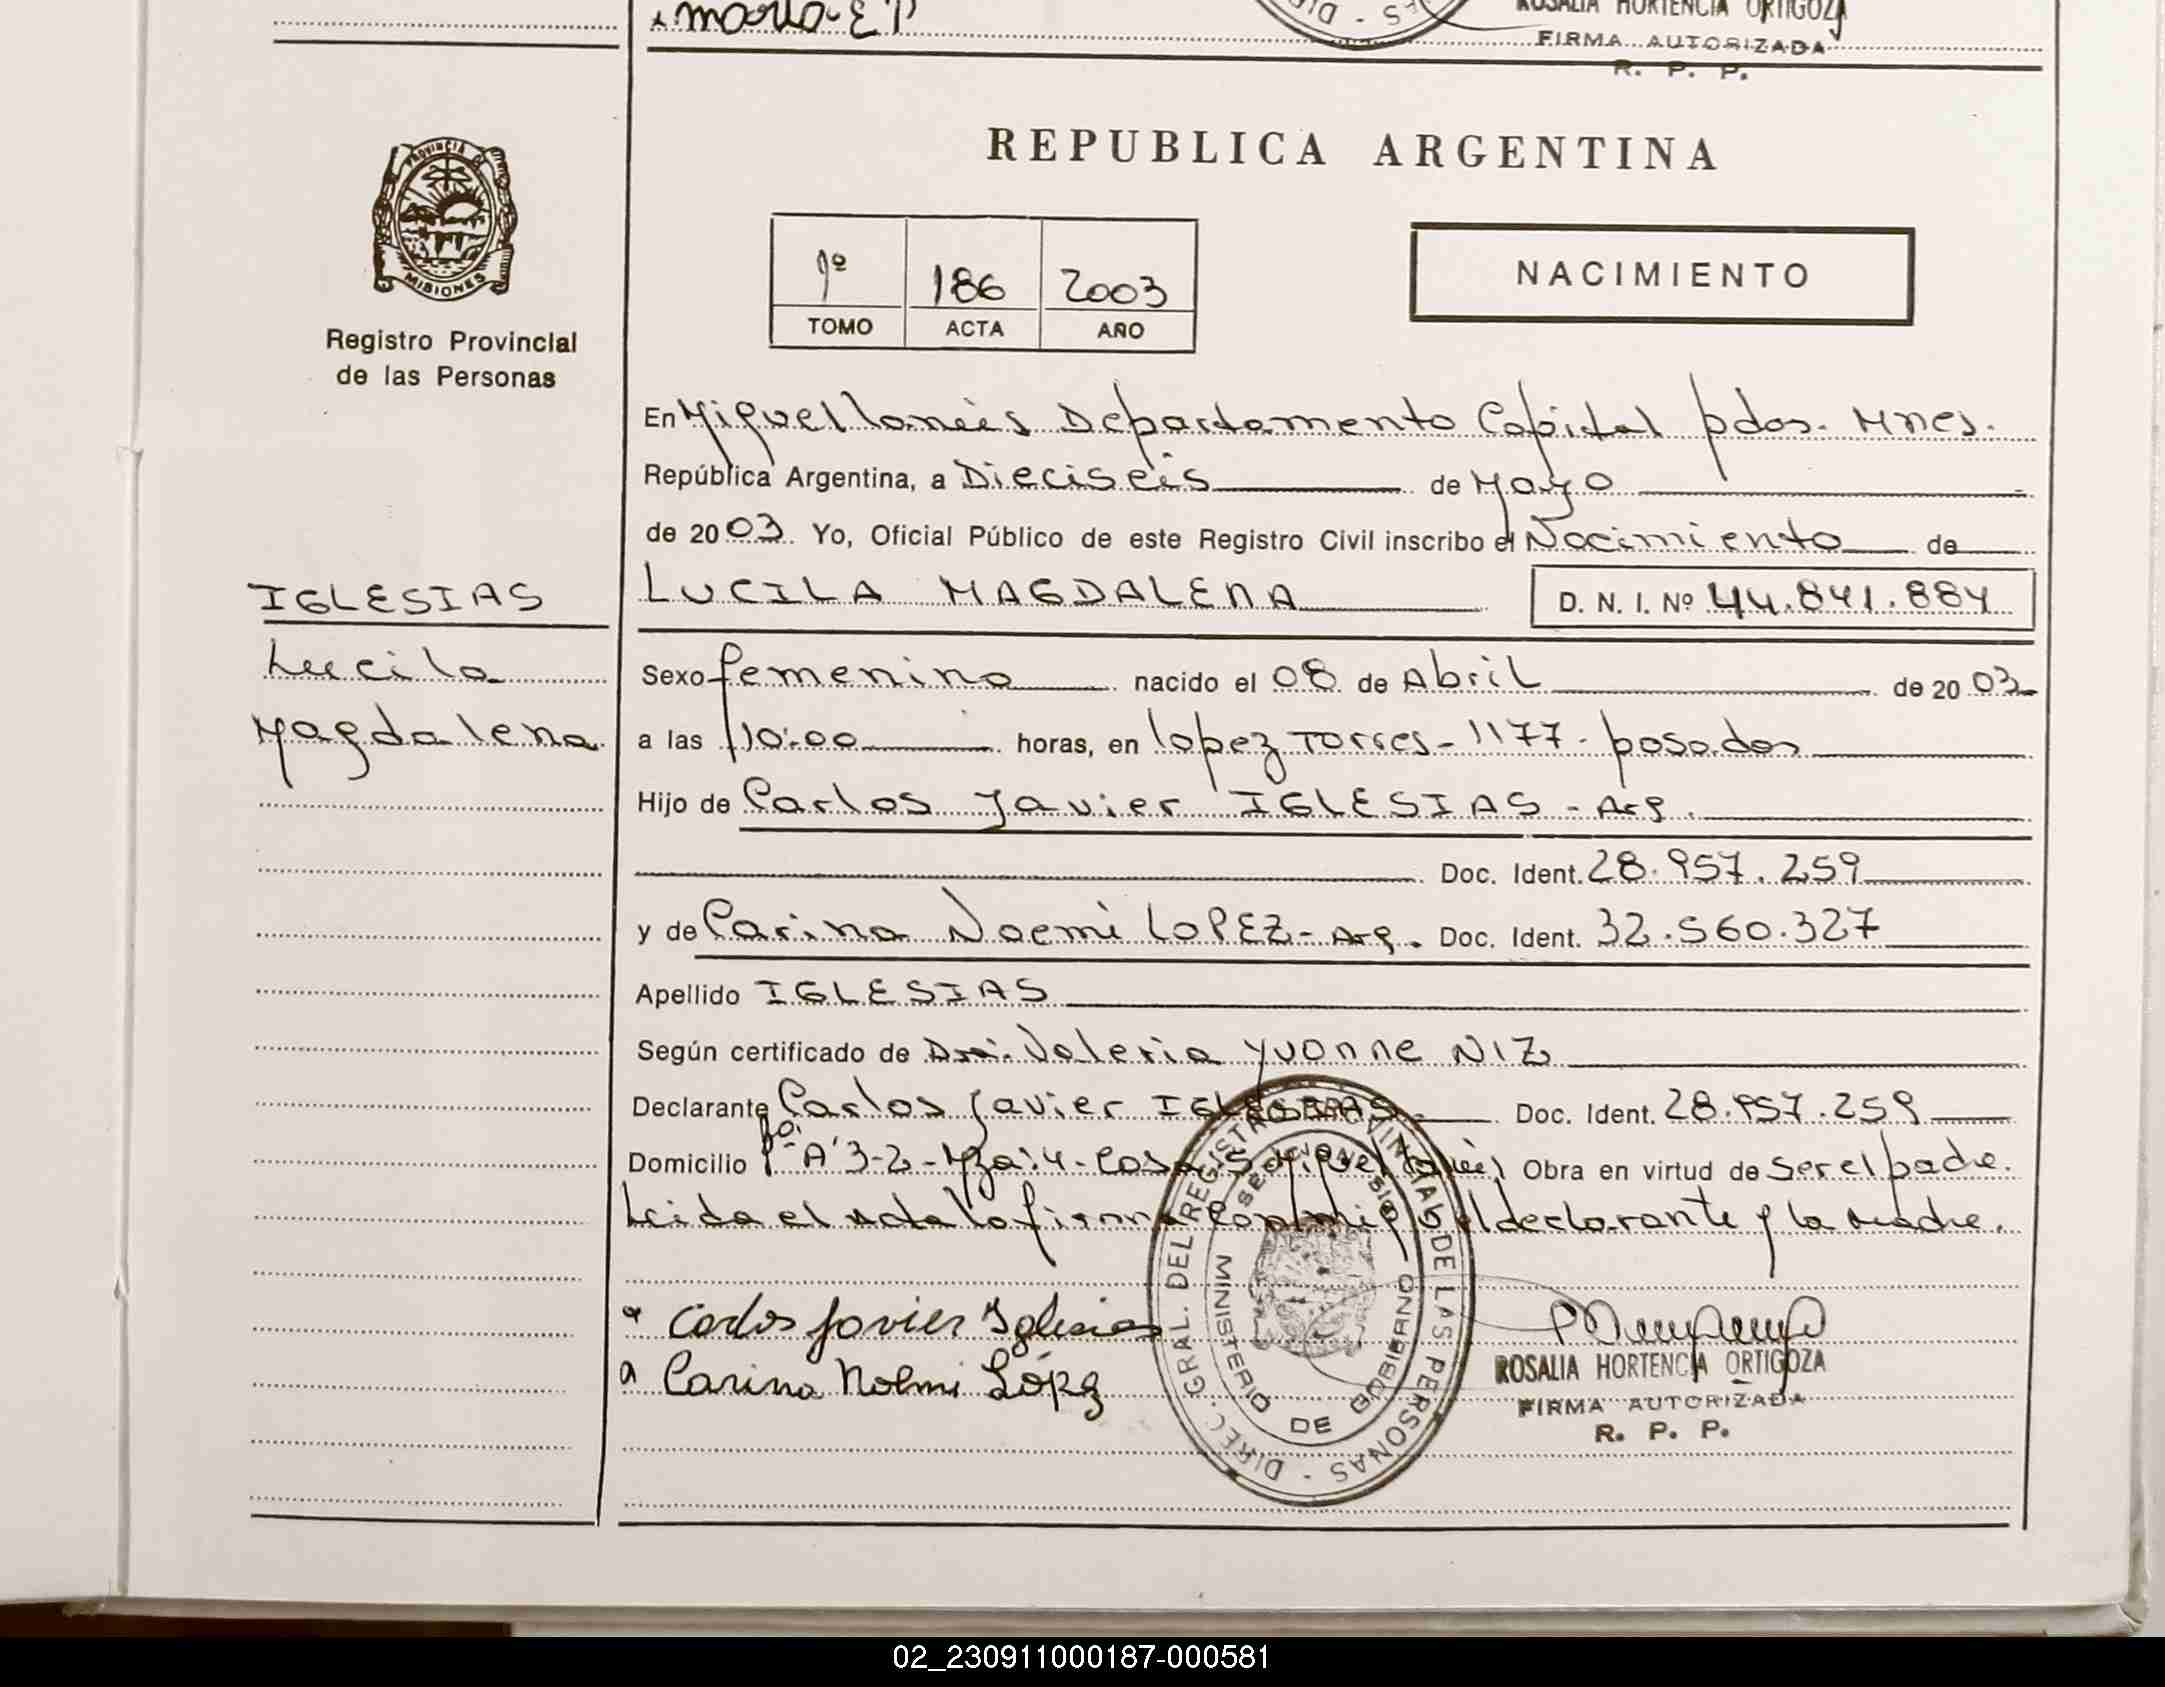 x maria E P
ROSALIA HORTENCIA ORTIGOZA
FIRMA AUTORIZADA
R. P. P.
PROVINCIA DE
MISIONES
Registro Provincial
de las Personas
REPUBLICA ARGENTINA
1º 186 2003
TOMO ACTA AÑO
NACIMIENTO
En Miguel lanús Departamento Capital pdas. Mnes.
República Argentina, a Dieciseis de Mayo
de 2003. Yo, Oficial Público de este Registro Civil inscribo el Nacimiento de
IGLESIAS
Lucila
Magdalena
LUCILA MAGDALENA D. N. I. Nº 44.841.884
Sexo femenino nacido el 08 de Abril de 2003
a las 10:00 horas, en lopez Torres - 1177 - posadas
Hijo de Carlos Javier IGLESIAS - Arg.
Doc. Ident. 28.957.259
y de Carina Noemi LOPEZ - Arg. Doc. Ident. 32.560.327
Apellido IGLESIAS
Según certificado de Dra. Valeria Yvonne NIZ
Declarante Carlos Javier IGLESIAS Doc. Ident. 28.957.259
Domicilio Bº A 3-2 - Mza: 4 - Casa 15 Miguel lanús Obra en virtud de ser el padre.
Leida el Acta la firman conmigo el declarante y la madre.
x Carlos Javier Iglesias
x Carina Noemi López
DIREC. GRAL. DEL REGISTRO PROVINCIAL DE LAS PERSONAS
MINISTERIO DE GOBIERNO
MISIONES
ROSALIA HORTENCIA ORTIGOZA
FIRMA AUTORIZADA
R. P. P.
02_230911000187-000581